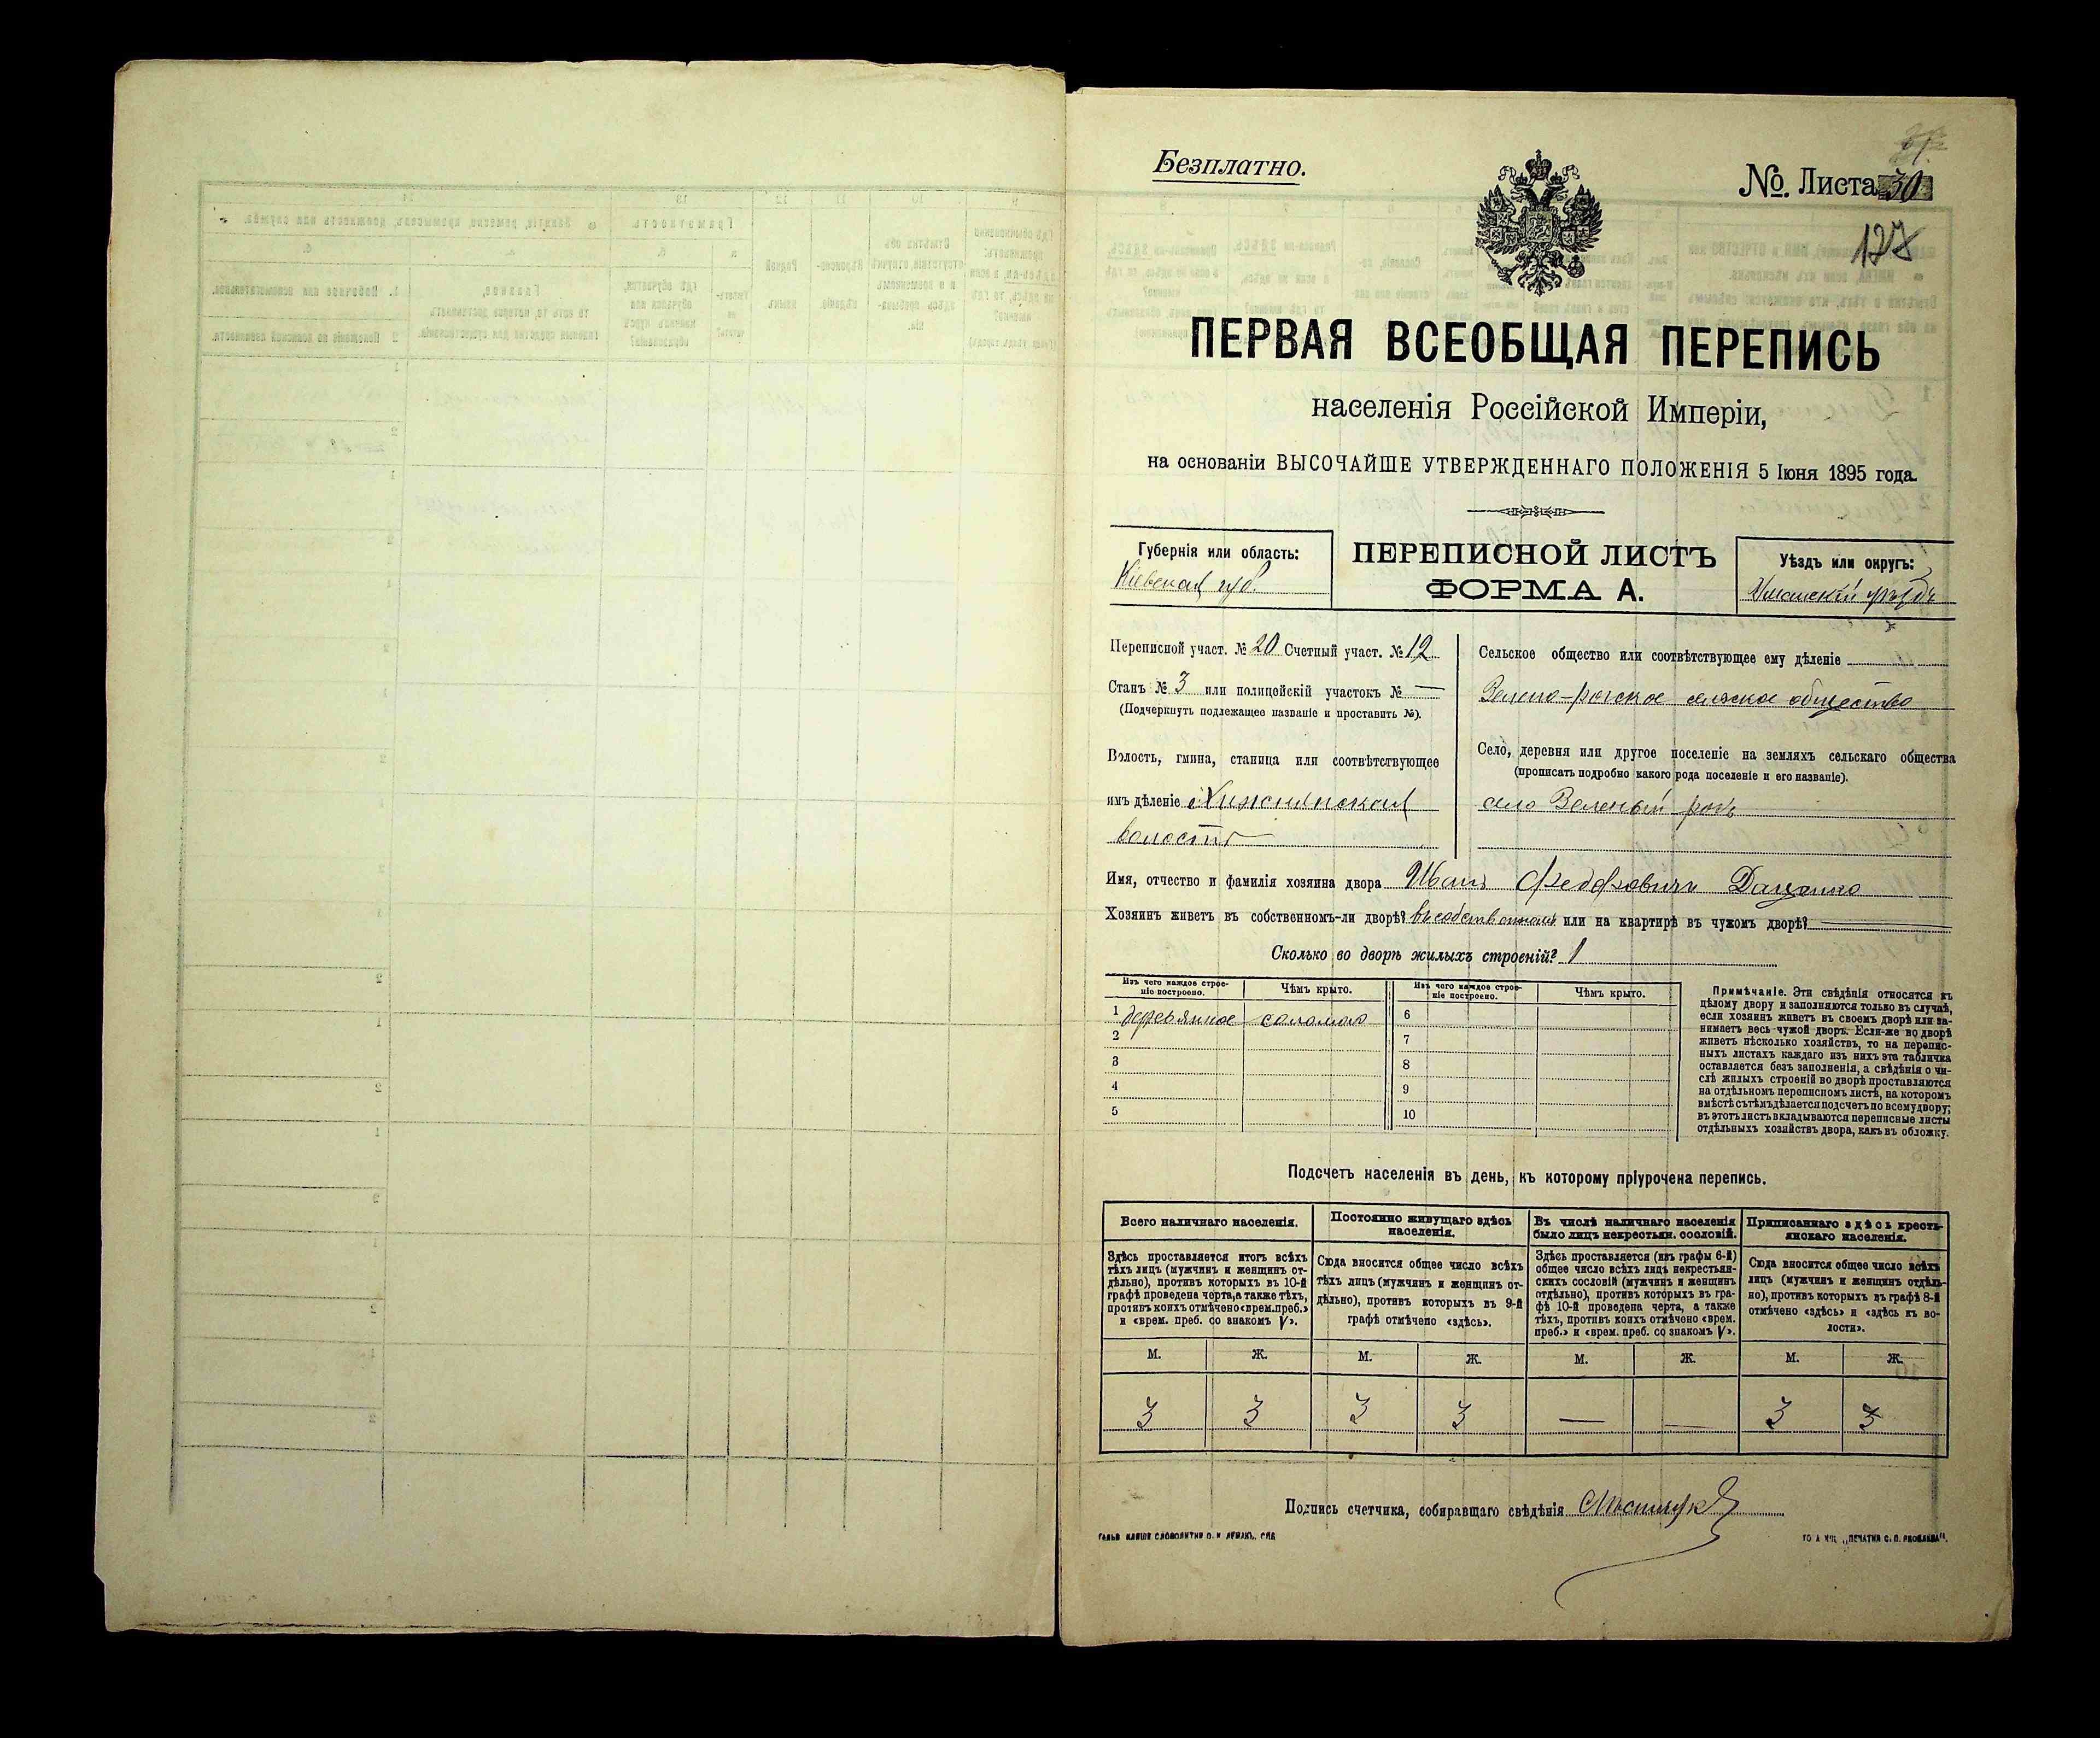 Безплатно.
№ Листа 30
127
ПЕРВАЯ ВСЕОБЩАЯ ПЕРЕПИСЬ
населенія Россійской Имперіи,
на основаніи ВЫСОЧАЙШЕ УТВЕРЖДЕННАГО ПОЛОЖЕНІЯ 5 Іюня 1895 года.
Губернія или область:
Кіевская губ.
ПЕРЕПИСНОЙ ЛИСТЪ
ФОРМА А.
Уѣздъ или округъ:
Уманскій уѣздъ
Переписной участ. № 20 Счетный участ. № 12
Станъ № 3 или полицейскій участокъ № —
(Подчеркнуть подлежащее названіе и проставить №).
Волость, гмина, станица или соотвѣтствующее
имъ дѣленіе
волость
Сельское общество или соотвѣтствующее ему дѣленіе
Зелено-рогское сельское общество
Село, деревня или другое поселеніе на земляхъ сельскаго общества
(прописать подробно какого рода поселеніе и его названіе).
село Зеленый рогъ
Имя, отчество и фамилія хозяина двора Иванъ Федоровичъ Даценко
Хозяинъ живетъ въ собственномъ-ли дворѣ? въ собственномъ или на квартирѣ въ чужомъ дворѣ? —
Сколько во дворѣ жилыхъ строеній? 1
Изъ чего каждое строе-
ніе построено.
Чѣмъ крыто.
Изъ чего каждое строе-
ніе построено.
Чѣмъ крыто.
1 деревянное соломою 6
2 7
3 8
4 9
5 10
Примѣчаніе. Эти свѣдѣнія относятся къ
цѣлому двору и заполняются только въ случаѣ,
если хозяинъ живетъ въ своемъ дворѣ или за-
нимаетъ весь чужой дворъ. Если-же во дворѣ
живетъ нѣсколько хозяйствъ, то на перепис-
ныхъ листахъ каждаго изъ нихъ эта табличка
оставляется безъ заполненія, а свѣдѣнія о чи-
слѣ жилыхъ строеній во дворѣ проставляются
на отдѣльномъ переписномъ листѣ, на которомъ
вмѣстѣ съ тѣмъ дѣлается подсчетъ по всему двору;
въ этотъ листъ вкладываются переписные листы
отдѣльныхъ хозяйствъ двора, какъ въ обложку.
Подсчетъ населенія въ день, къ которому пріурочена перепись.
Всего наличнаго населенія.
Здѣсь проставляется итогъ всѣхъ
тѣхъ лицъ (мужчинъ и женщинъ от-
дѣльно), противъ которыхъ въ 10-й
графѣ проведена черта, а также тѣхъ,
противъ коихъ отмѣчено «врем. преб.»
и «врем. преб. со знакомъ V».
Постоянно живущаго здѣсь
населенія.
Сюда вносится общее число всѣхъ
тѣхъ лицъ (мужчинъ и женщинъ от-
дѣльно), противъ которыхъ въ 9-й
графѣ отмѣчено «здѣсь».
Въ числѣ наличнаго населенія
было лицъ некрестьян. сословій.
Здѣсь проставляется (изъ графы 6-й)
общее число всѣхъ лицъ некрестьян-
скихъ сословій (мужчинъ и женщинъ
отдѣльно), противъ которыхъ въ гра-
фѣ 10-й проведена черта, а также
тѣхъ, противъ коихъ отмѣчено «врем.
преб.» и «врем. преб. со знакомъ V».
Приписаннаго здѣсь кресть-
янскаго населенія.
Сюда вносится общее число всѣхъ
лицъ (мужчинъ и женщинъ отдѣль-
но), противъ которыхъ въ графѣ 8-й
отмѣчено «здѣсь» и «здѣсь къ во-
лости».
М. Ж. М. Ж. М. Ж. М. Ж.
3 3 3 3 — — 3 3
Подпись счетчика, собиравшаго свѣдѣнія